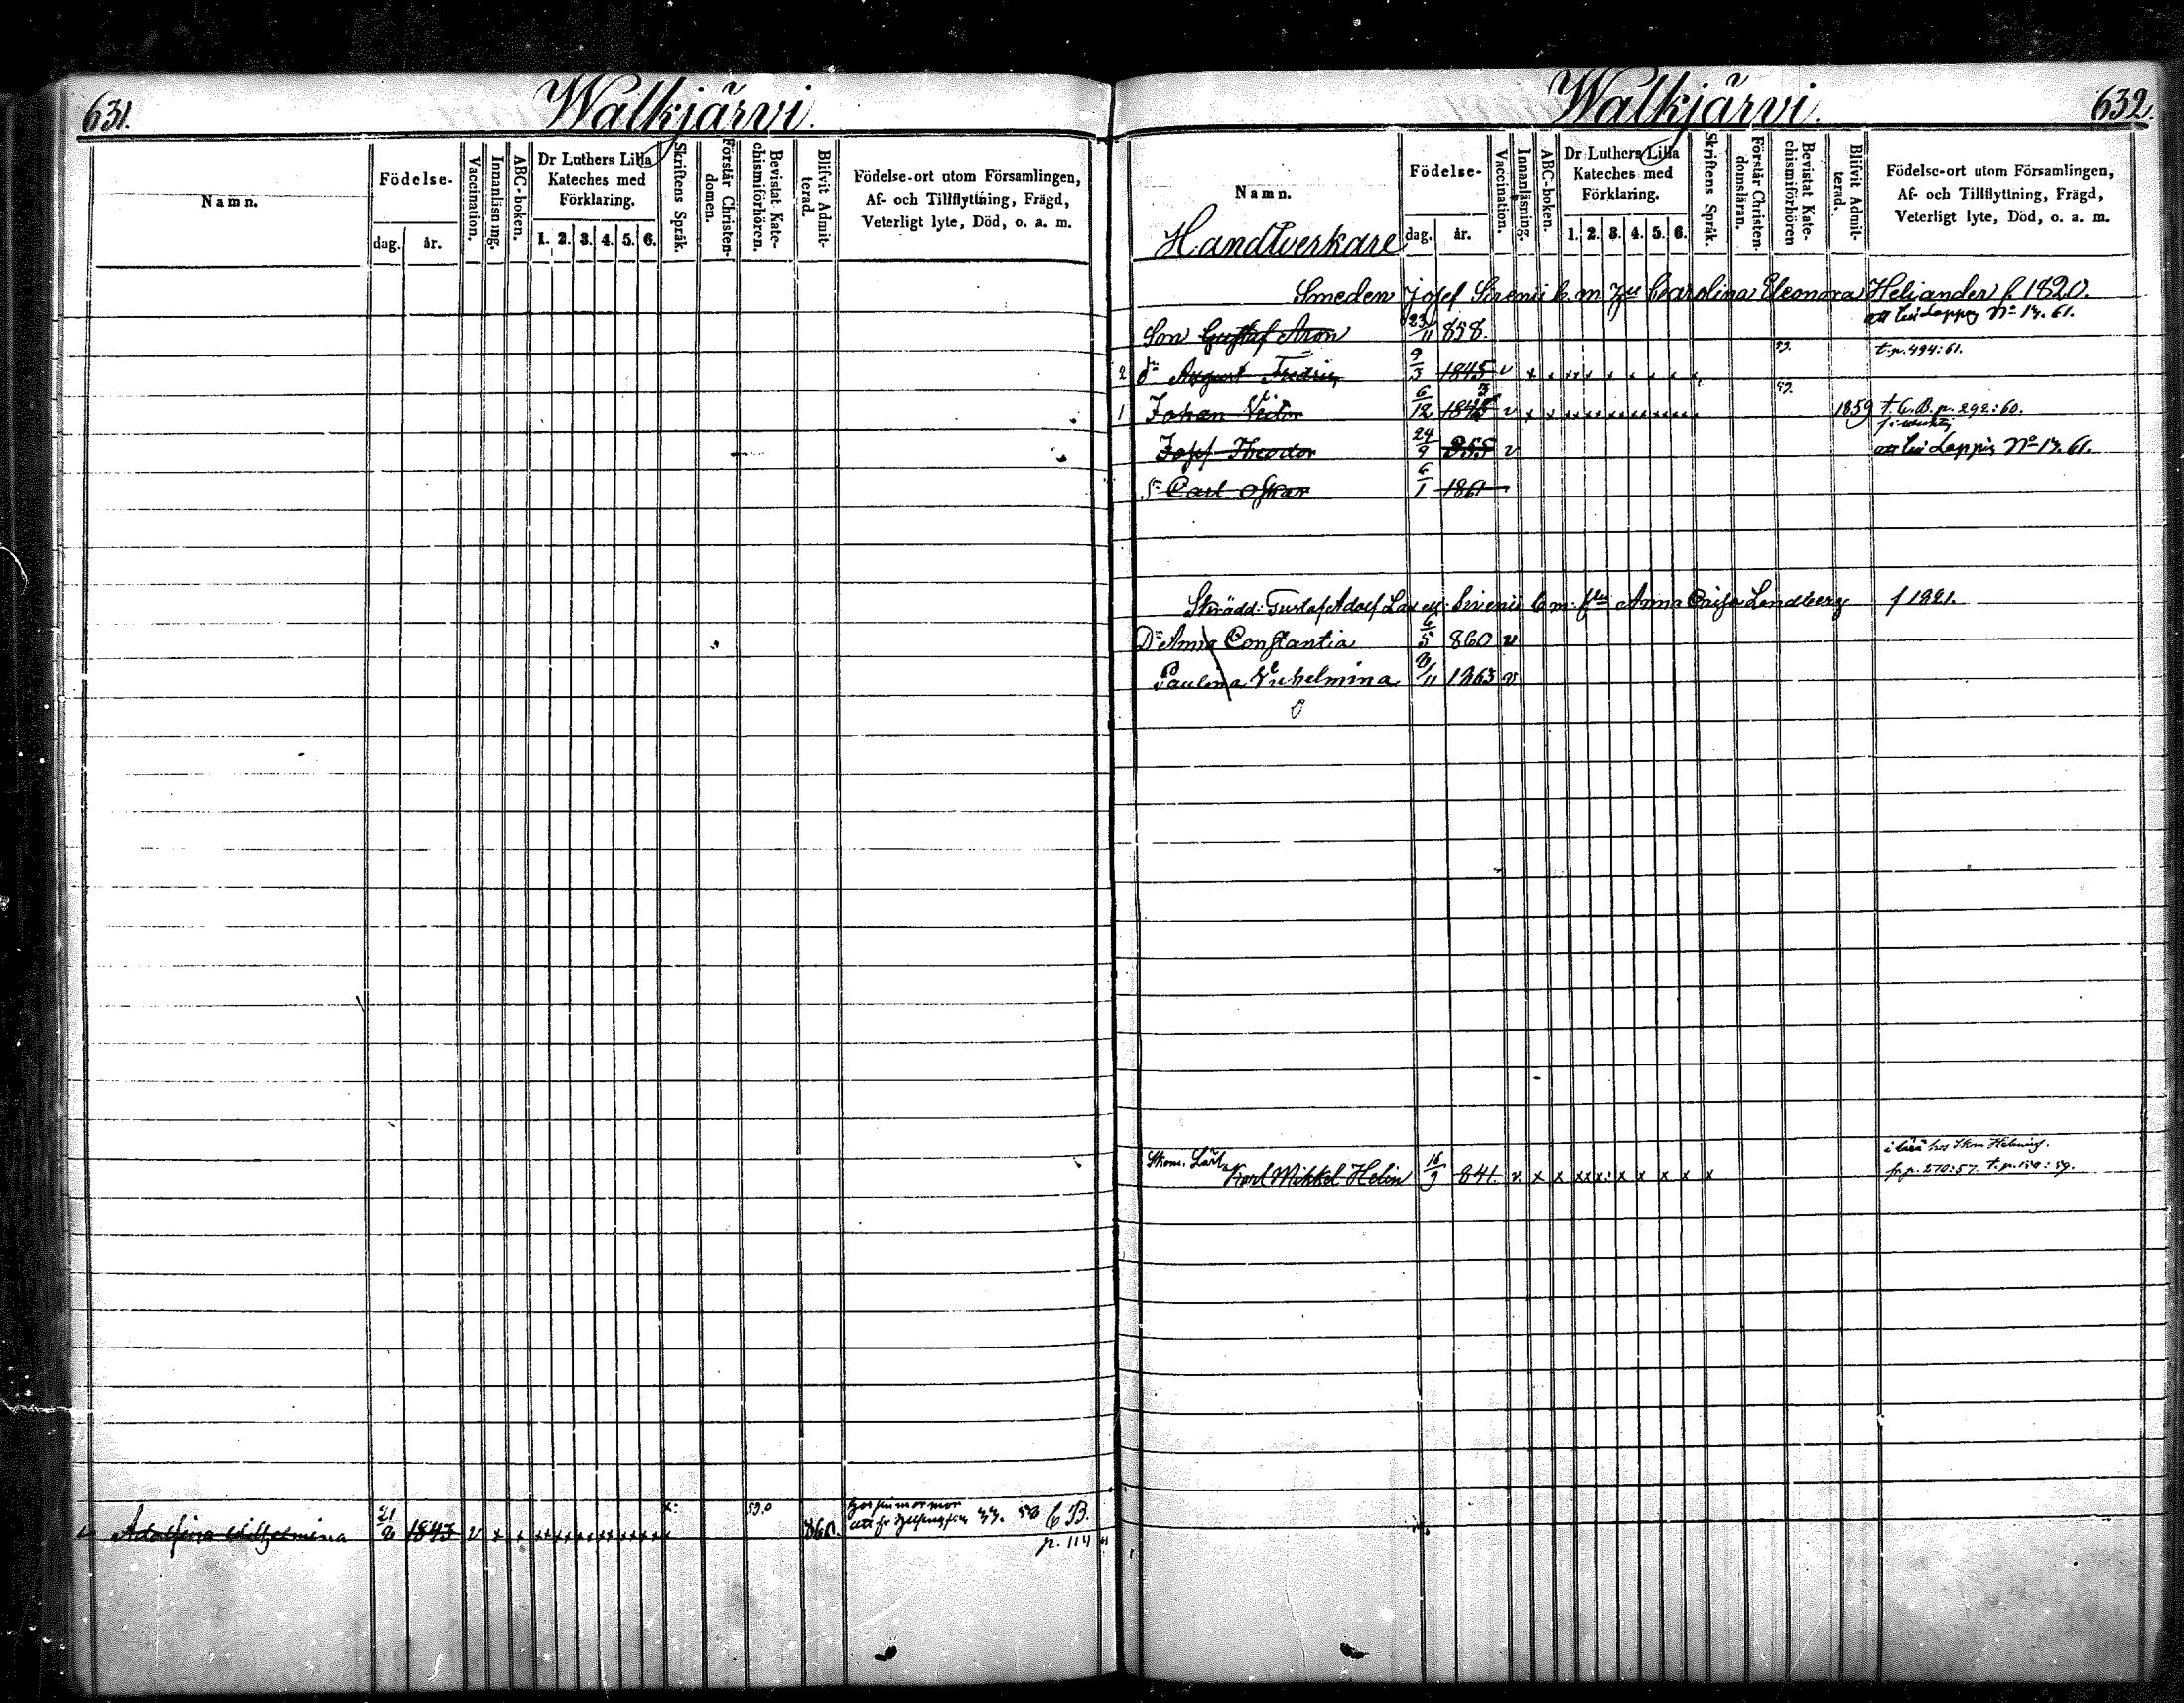 631.
Walkjärvi.
Namn.
Födelse-
dag. år.
Vaccination.
Innanläsning.
ABC-boken.
Dr Luthers Lilla
Kateches med
Förklaring.
1. 2. 3. 4. 5. 6.
Skriftens Språk.
Förstår Christen-
domen.
Bevistat Kate-
chismiförhören.
Blifvit Admit-
terad.
Födelse-ort utom Församlingen,
Af- och Tillflyttning, Frägd,
Veterligt lyte, Död, o. a. m.
Adolfina Wilhelmina 21/8 1843 v x x 59.0 860.
p. 114
Walkjärvi.
632.
Namn.
Handtverkare
Födelse-
dag. år.
Vaccination.
Innanläsning.
ABC-boken.
Dr Luthers Lilla
Kateches med
Förklaring.
1. 2. 3. 4. 5. 6.
Skriftens Språk.
Förstår Christen-
domsläran.
Bevistat Kate-
chismiförhören
Blifvit Admit-
terad.
Födelse-ort utom Församlingen,
Af- och Tillflyttning, Frägd,
Veterligt lyte, Död, o. a. m.
Smeden Josef Sirenii b. m Carolina Eleonora Heliander f. 1820.
att Loppis No 17. 61.
Son Gustaf Aron 23/11 858.
2 August Fredric 9/3 1845 v 59. t. p. 494: 61.
1 Johan Victor 6/12 v 59. 1859 t. C. B. p. 292: 60.
Josef Theodor 24/9 855 v att Loppis No 17. 61.
Carl Oskar 6/1 1861
Gustaf Adolf Anna Cajsa Landberg f 1821.
Dr Anna Constantia 6/5 860 v
Paulina Vilhelmina 1863 v
Skom. Lärl.
Karl Mikkel Helin 16/9 841. v. x x x x x x x
fr. p. 270: 57.